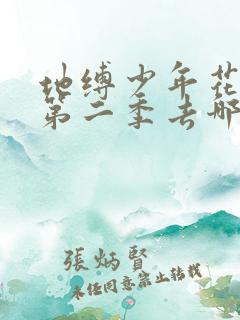 地缚少年花
第二季去哪
張炳賢
未经同意禁止转载